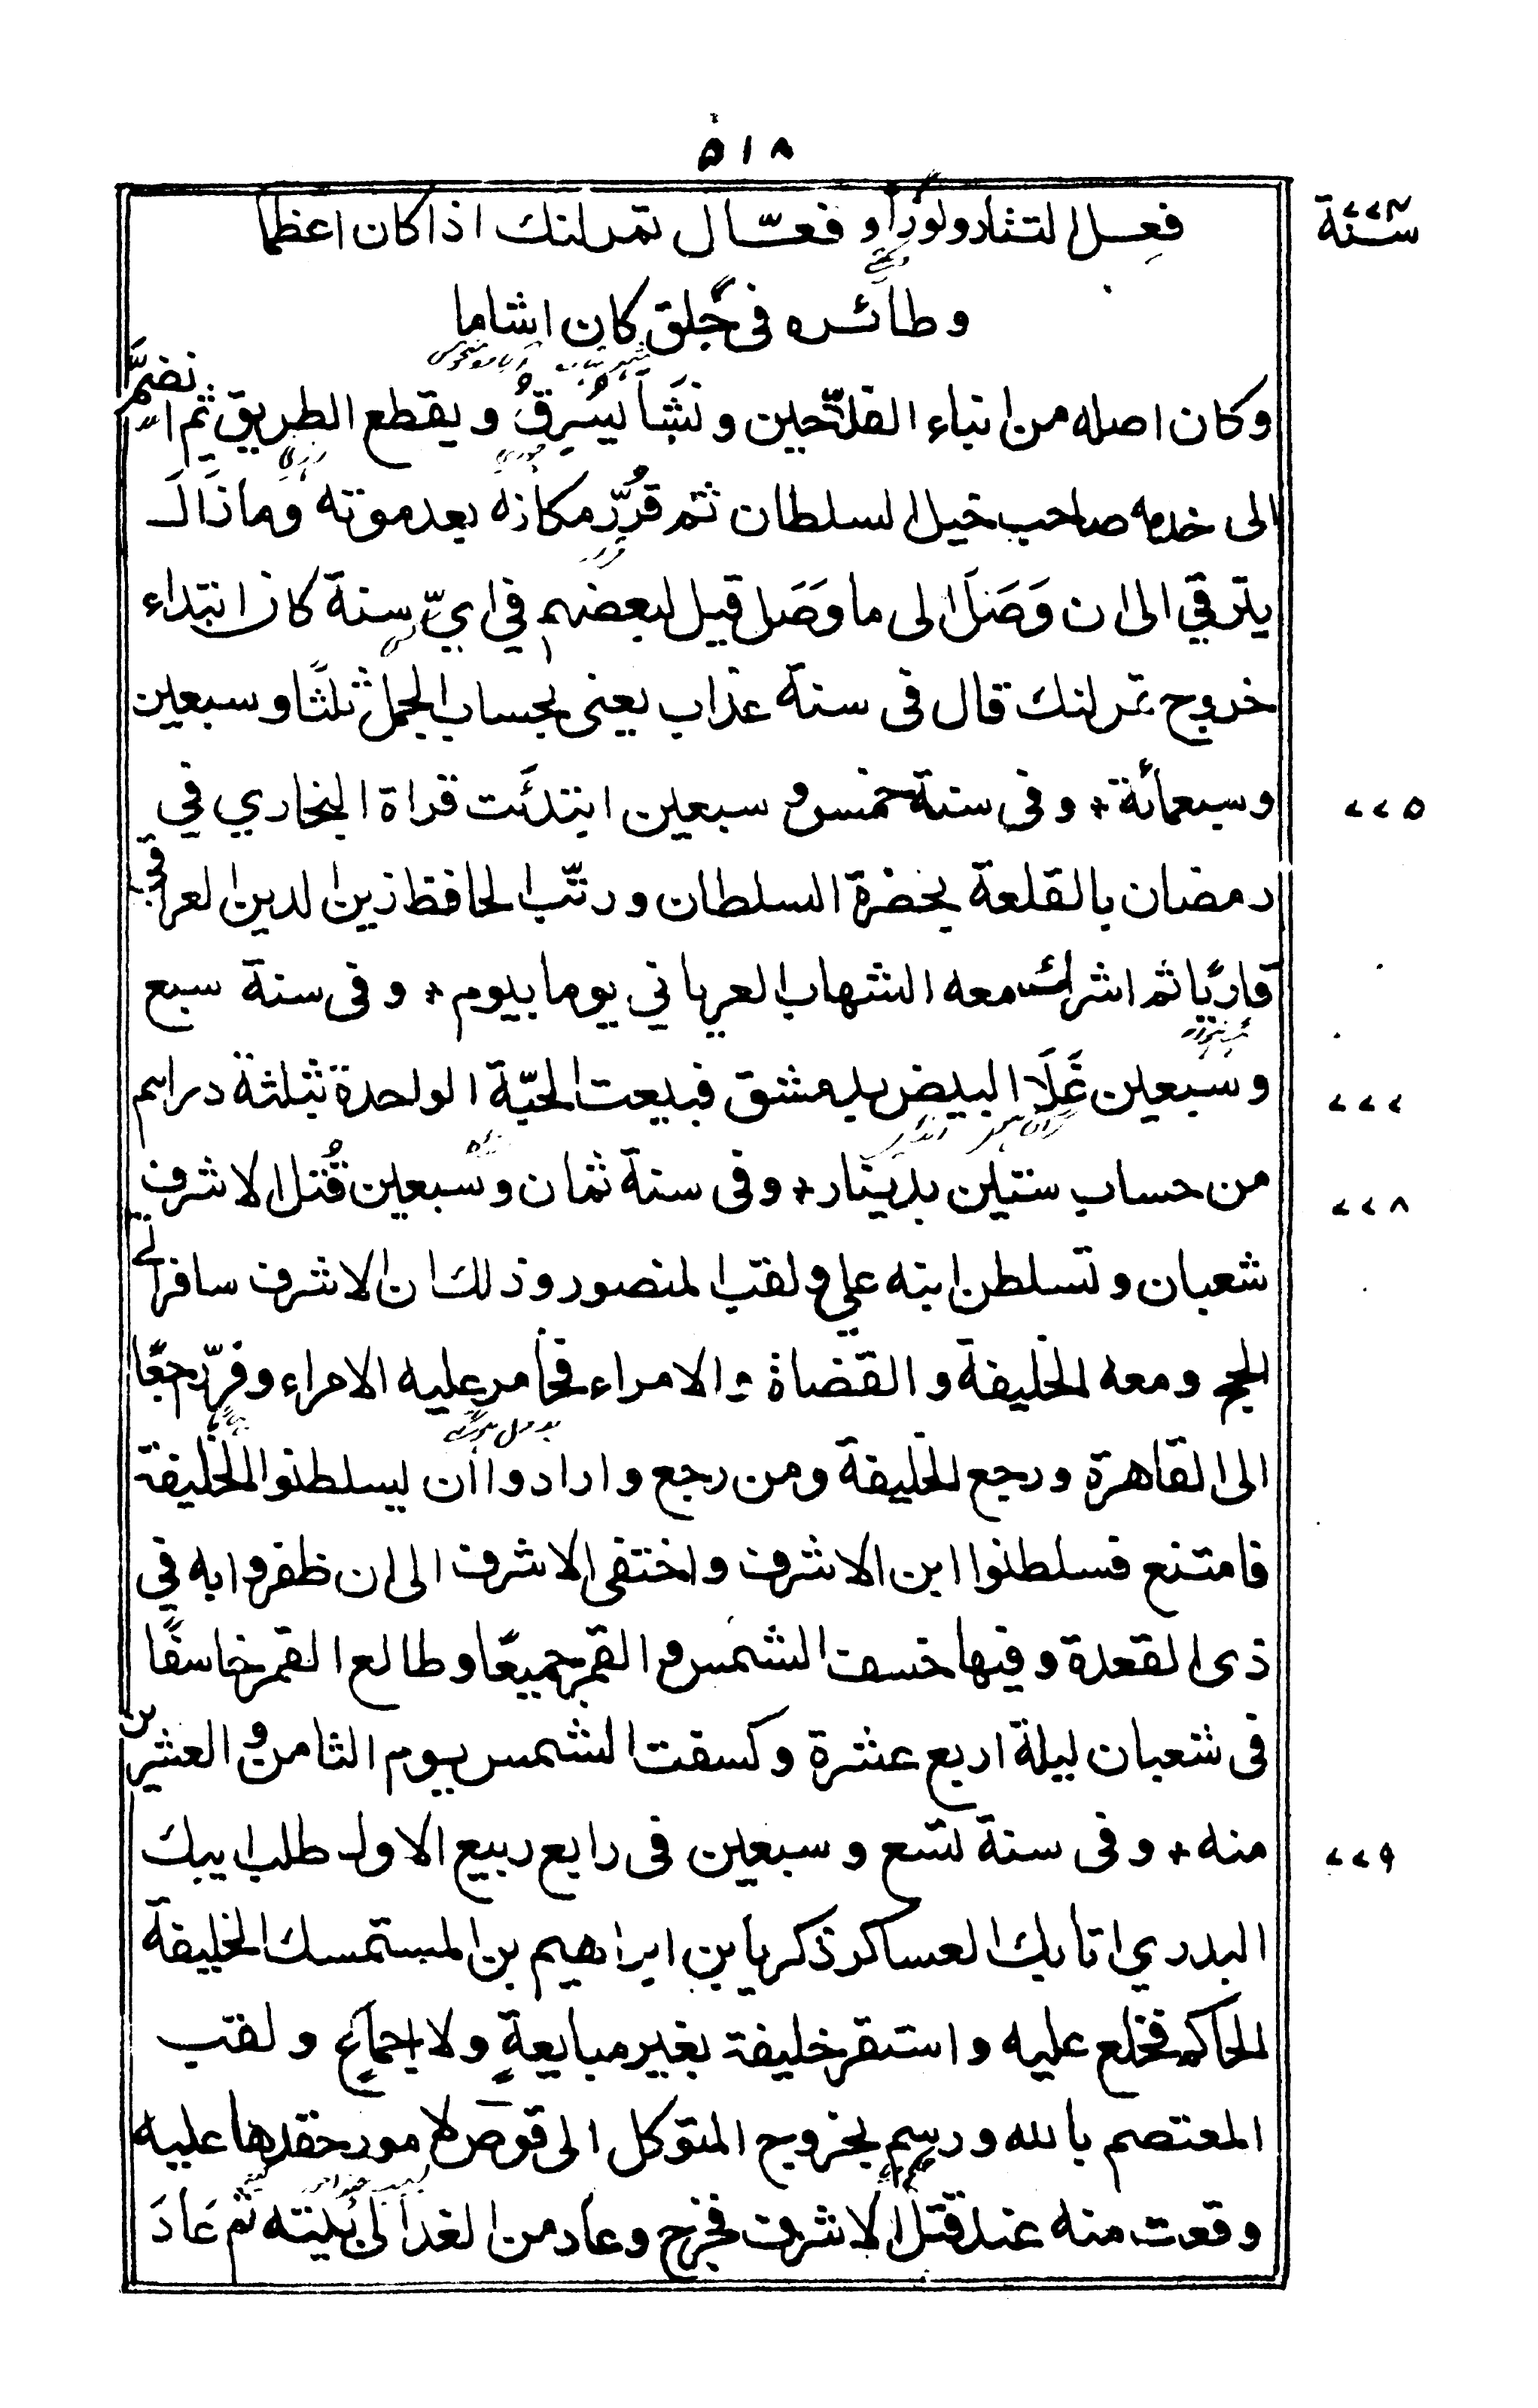 ٥١٨
سنة ٧٧٣
فعل التتار ولو رأوا فعّال تمرلنك اذا كان اعظما
وطائره في جلق كان اشاما
وكان اصله من ابناء الفلّاحين ونَشَأ يسْرِقُ ويقطع الطريق ثم انضمَّ
الى خدمه صاحب خيل السلطان ثم قُرِّر مكانه بعد موته وما زَالَ
يترقي الى ان وَصَلَ الى ما وَصَل قيل لبعضهم في ايّ سنة كان ابتداء
خروج تمرلنك قال في سنة عذاب يعنى بحساب الجمل ثلثًا وسبعين
وسبعمائة + وفي سنة خمس و سبعين ابتدئت قراة البخاري في
٧٧٥
رمضان بالقلعة بحضرة السلطان ورتّب الحافظ زين الدين العراقي
قاريًا ثم اشرك معه الشهاب العرياني يوما بيوم + وفي سنة سبع
وسبعين غَلَا البيض بدمشق فبيعت الحبّة الواحدة بثلثة دراهم
٧٧٧
من حساب ستين بدينار + وفي سنة ثمان وسبعين قُتل الاشرف
٧٧٨
شعبان وتسلطن ابنه علي ولقب المنصور وذلك ان الاشرف سافر الى
الحج ومعه الخليفة والقضاة والامراء فخامر عليه الامراء وفرّ راجعًا
الى القاهرة ورجع الخليفة ومن رجع وارادوا ان يسلطنوا الخليفة
فامتنع فسلطنوا ابن الاشرف واختفى الاشرف الى ان ظفروا به في
ذى القعدة وفيها خسف الشمس والقمر جميعًا وطالع القمر خاسفًا
في شعبان ليلة اربع عشرة وكسفت الشمس يوم الثامن والعشرين
منه + وفي سنة تسع وسبعين في رابع ربيع الاول طلب ايبك
٧٧٩
البدري اتابك العساكر زكريا بن ابراهيم بن المستمسك الخليفة
الحاكم فخلع عليه واستقر خليفة بغير مبايعةٍ ولا اجماعٍ ولقب
المعتصم بالله ورسم بخروج المتوكل الى قوص لامور حقدها عليه
وقعت منه عند قتل الاشرف فخرج وعاد من الغد الى بيته ثم عَادَ